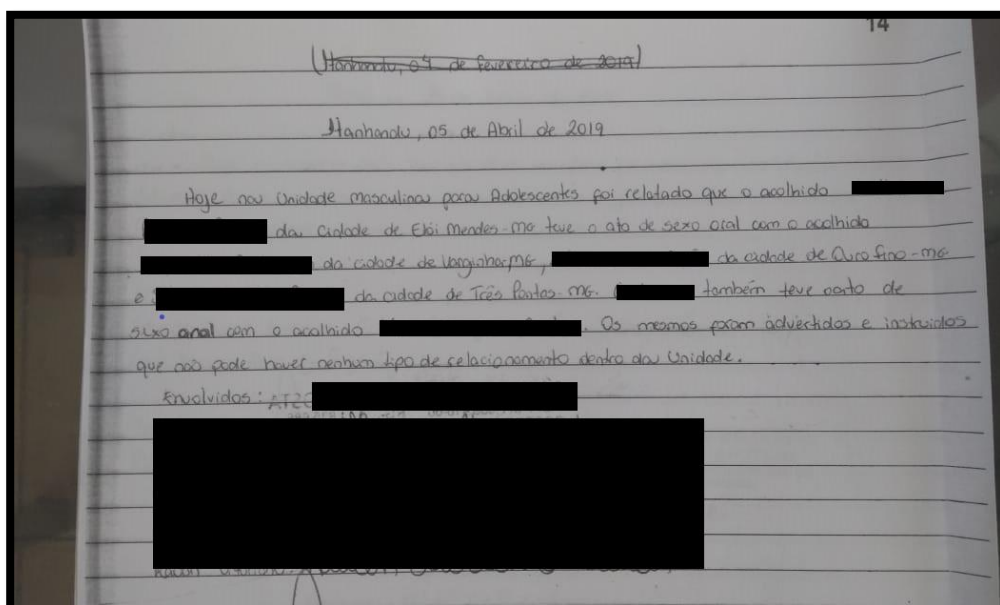 14
(Itanhandu, 04 de fevereiro de 2019)
Itanhandu, 05 de Abril de 2019
Hoje na Unidade masculina para Adolescentes foi relatado que o acolhido
da Cidade de Elói Mendes-MG teve o ato de sexo oral com o acolhido
da cidade de Varginha MG, da cidade de Ouro fino-MG
e da cidade de Três Pontas MG. também teve o ato de
sexo anal com o acolhido . Os mesmos foram advertidos e instruidos
que não pode haver nenhum tipo de relacionamento dentro da Unidade.
Envolvidos: